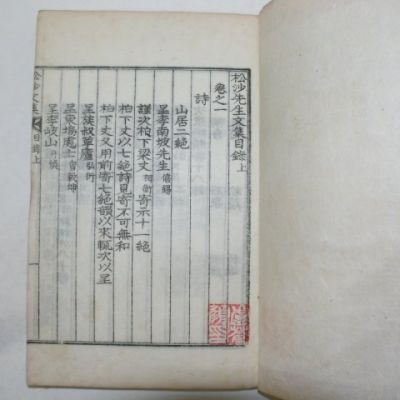 松沙先生文集目錄上
卷之一
詩
山居二絕
呈李南坡先生僖錫
謹次柏下梁丈相衡寄示十一絕
柏下丈以七絕詩見寄不可無和
柏下丈又用前寄七絕韻以來輒次以呈
呈族叔草廬弘衍
呈東塢處士曺毅坤
呈李岐山
松沙文集
目錄上